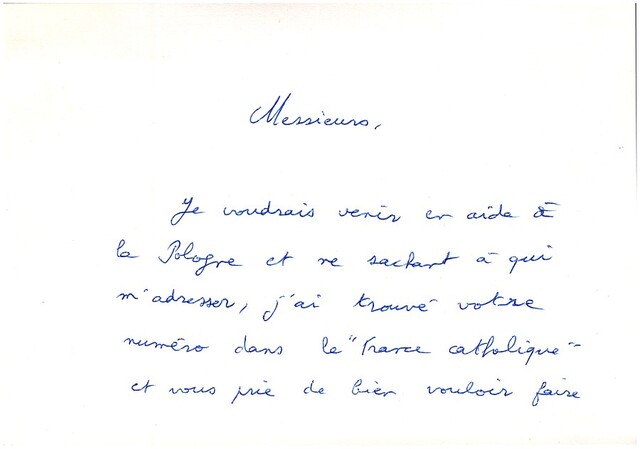 Messieurs,
Je voudrais venir en aide à
la Pologne et ne sachant à qui
m'adresser, j'ai trouvé votre
numéro dans le "France catholique"
et vous prie de bien vouloir faire